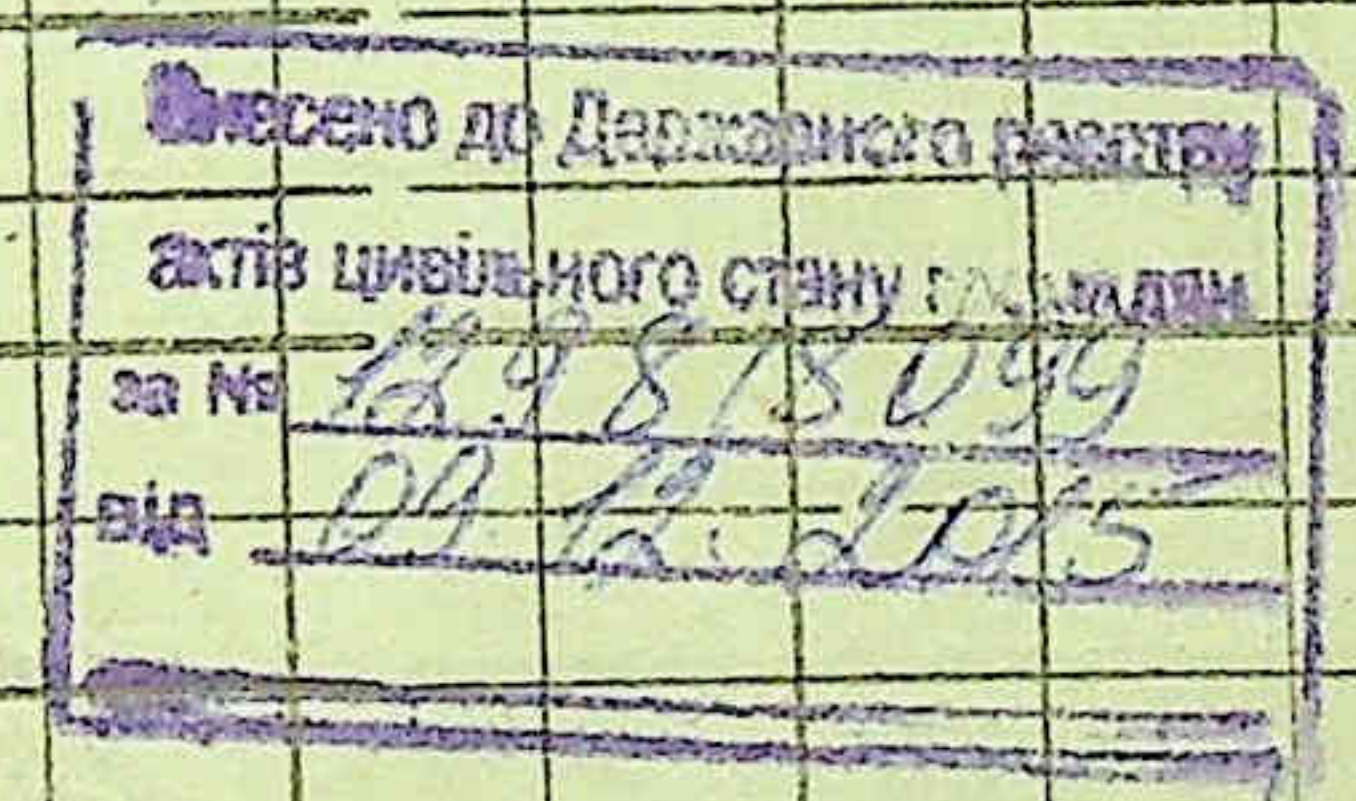 Внесено до Державного реєстру
актів цивільного стану громадян
за №
від 09.12.2015